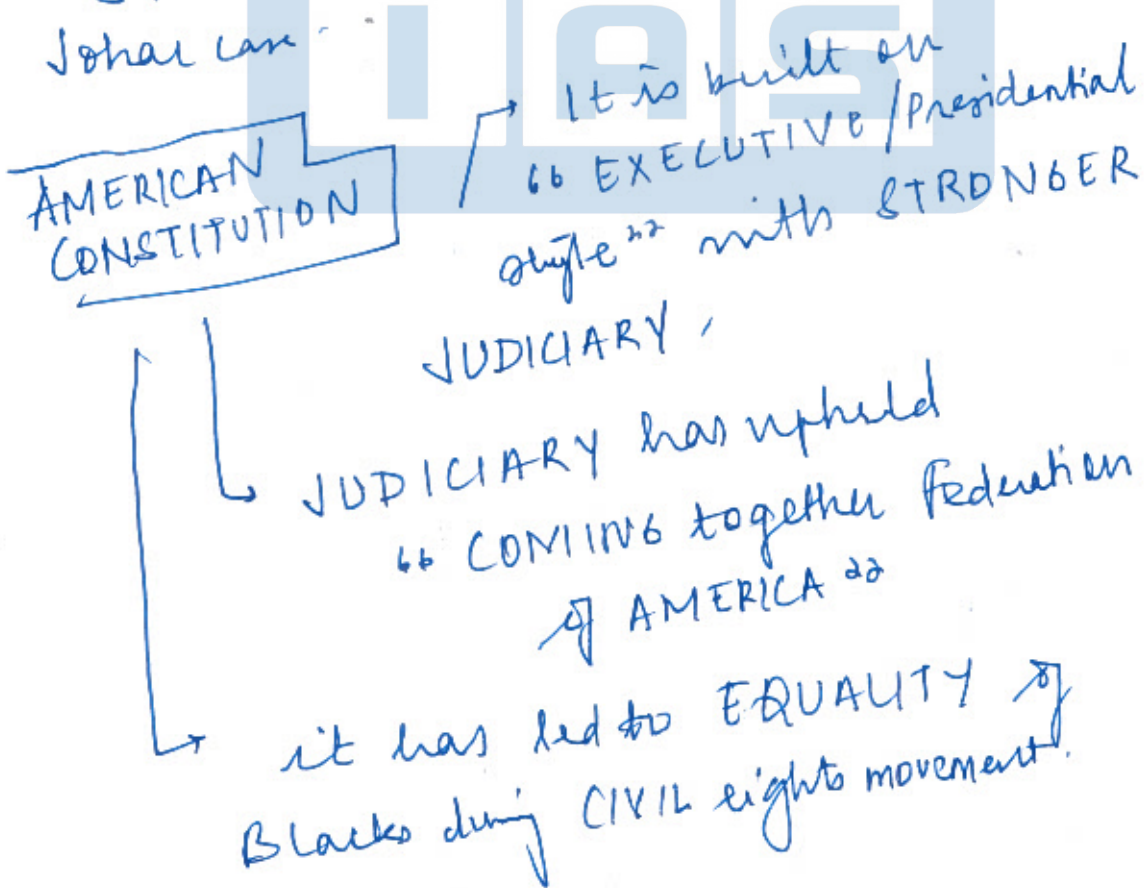 Johar case.
IAS
AMERICAN
CONSTITUTION
It is built on
"EXECUTIVE/Presidential
style" with STRONGER
JUDICIARY,
JUDICIARY has upheld
"COMING together Federation
of AMERICA"
it has led to EQUALITY of
Blacks during CIVIL rights movement.